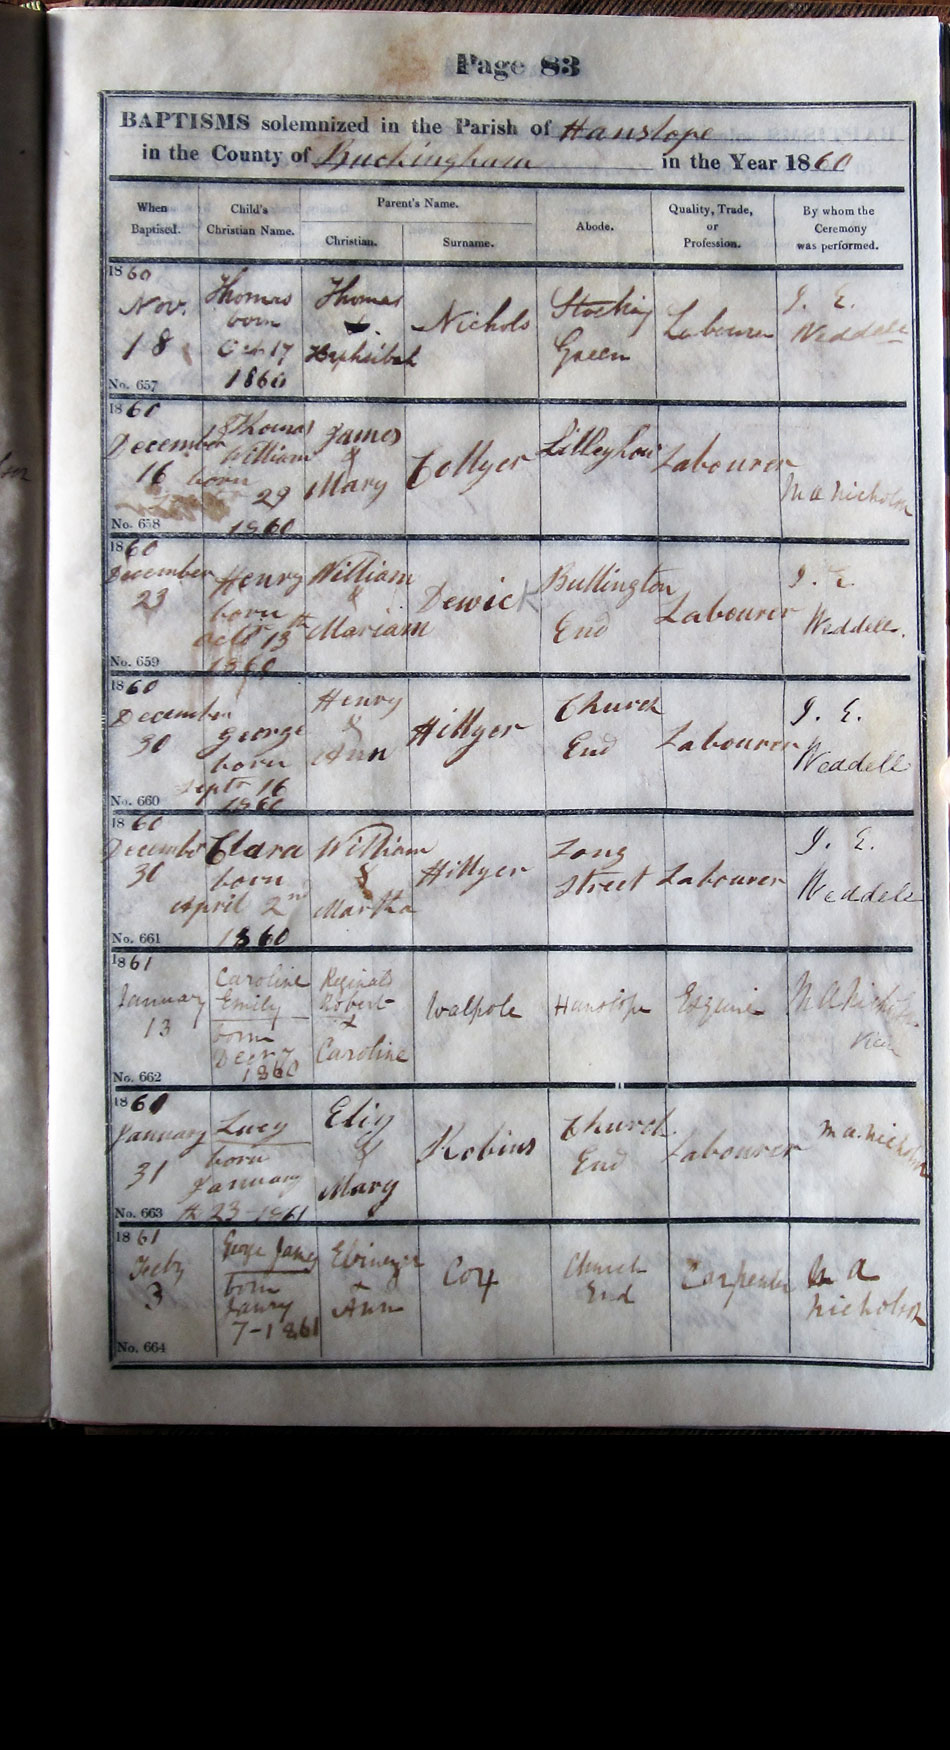 Page 83
BAPTISMS solemnized in the Parish of Hanslope
in the County of Buckingham in the Year 1860
When Baptised.
Child's Christian Name.
Parent's Name.
Christian.
Surname.
Abode.
Quality, Trade, or Profession.
By whom the Ceremony was performed.
1860
Nov. 18
No. 657
Thomas
born
Oct 17
1860
Thomas
&
Hephsibah
Nichols
Stocking
Green
Labourer
J. E.
Weddell
1860
December
16
No. 658
Thomas
William
born
29
1860
James
&
Mary
Collyer
Lilleyhow
Labourer
M A Nicholson
1860
December
23
No. 659
Henry
born
Octo 13th
1860
William
&
Mariam
Dewick
Bullington
End
Labourer
J. E.
Weddell.
1860
December
30
No. 660
George
born
Septr 16
1860
Henry
&
Ann
Hillyer
Church
End
Labourer
J. E.
Weddell
1860
December
30
No. 661
Clara
born
April 2nd
1860
William
&
Martha
Hillyer
Long
Street
Labourer
J. E.
Weddell
1861
January
13
No. 662
Caroline
Emily
born
Decr 7
1860
Reginald
Robert
&
Caroline
Walpole
Hanslope
Esquire
M A Nicholson
Vicar
1861
January
31
No. 663
Lucy
born
January
th 23-1861
Eliy
&
Mary
Robins
Church
End
Labourer
M A. Nicholson
1861
Feby
3
No. 664
George James
born
Janry
7-1861
Ebinezer
&
Ann
Cox
Church
End
Carpenter
M A
Nicholson